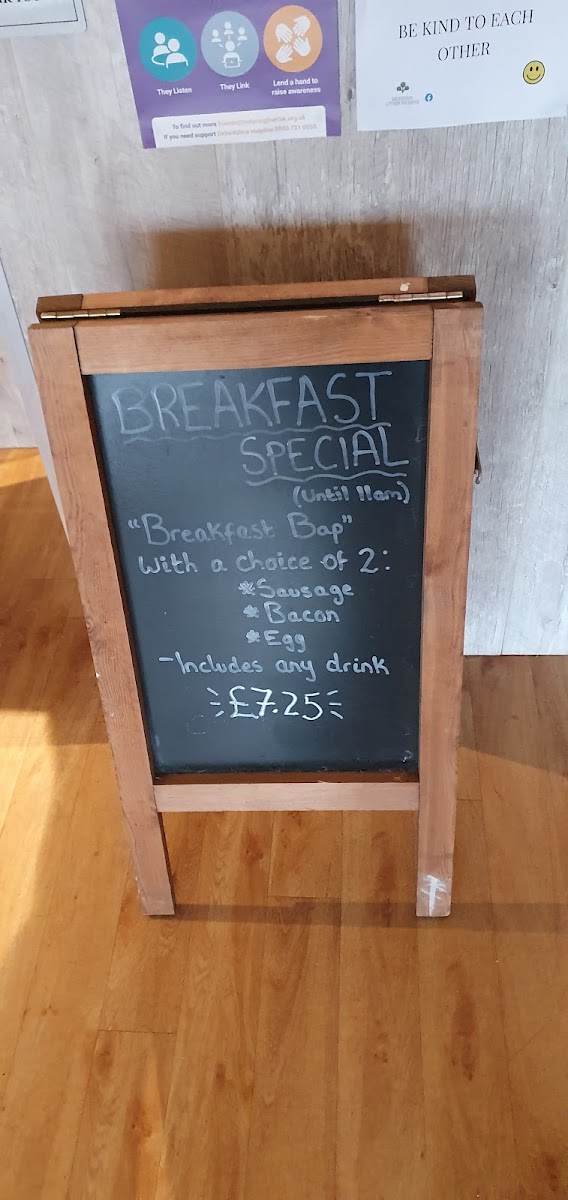 They Listen
They Link
Lend a hand to
raise awareness
To find out more
If you need support Oxfordshire Helpline 0800 731 0055
BE KIND TO EACH
OTHER
BREAKFAST
SPECIAL
(Until 11am)
"Breakfast Bap"
With a choice of 2:
*Sausage
*Bacon
*Egg
-Includes any drink
£7.25